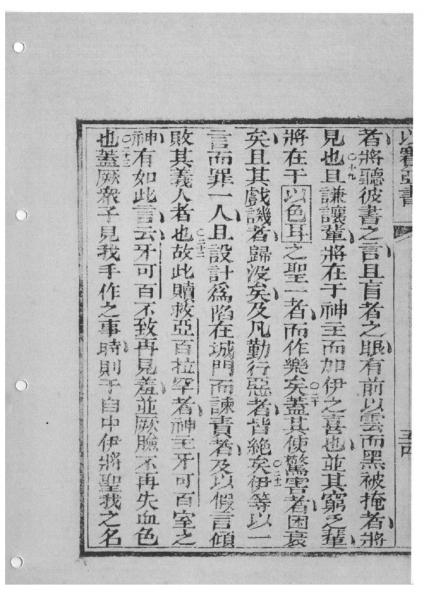 以賽亞書
者將聽彼書之言且盲者之眼有前以雲而黑被掩者將
見也○十九且謙讓輩將在于神主而加伊之喜也並其窮乏輩
將在于以色耳之聖一者而作樂矣○二十蓋其使驚害者困衰
矣且其戲譏者歸没矣及凡勤行惡者皆絕矣○二十一伊等以一
言而罪一人且設計爲陷在城門而諫責者及以假言傾
敗其義人者也○二十二故此贖救亞百拉罕者神主牙可百室之
神有如此言云牙可百不致再見羞並厥臉不再失血色
也○二十三蓋厥衆子見我手作之事時則于自中伊將聖我之名